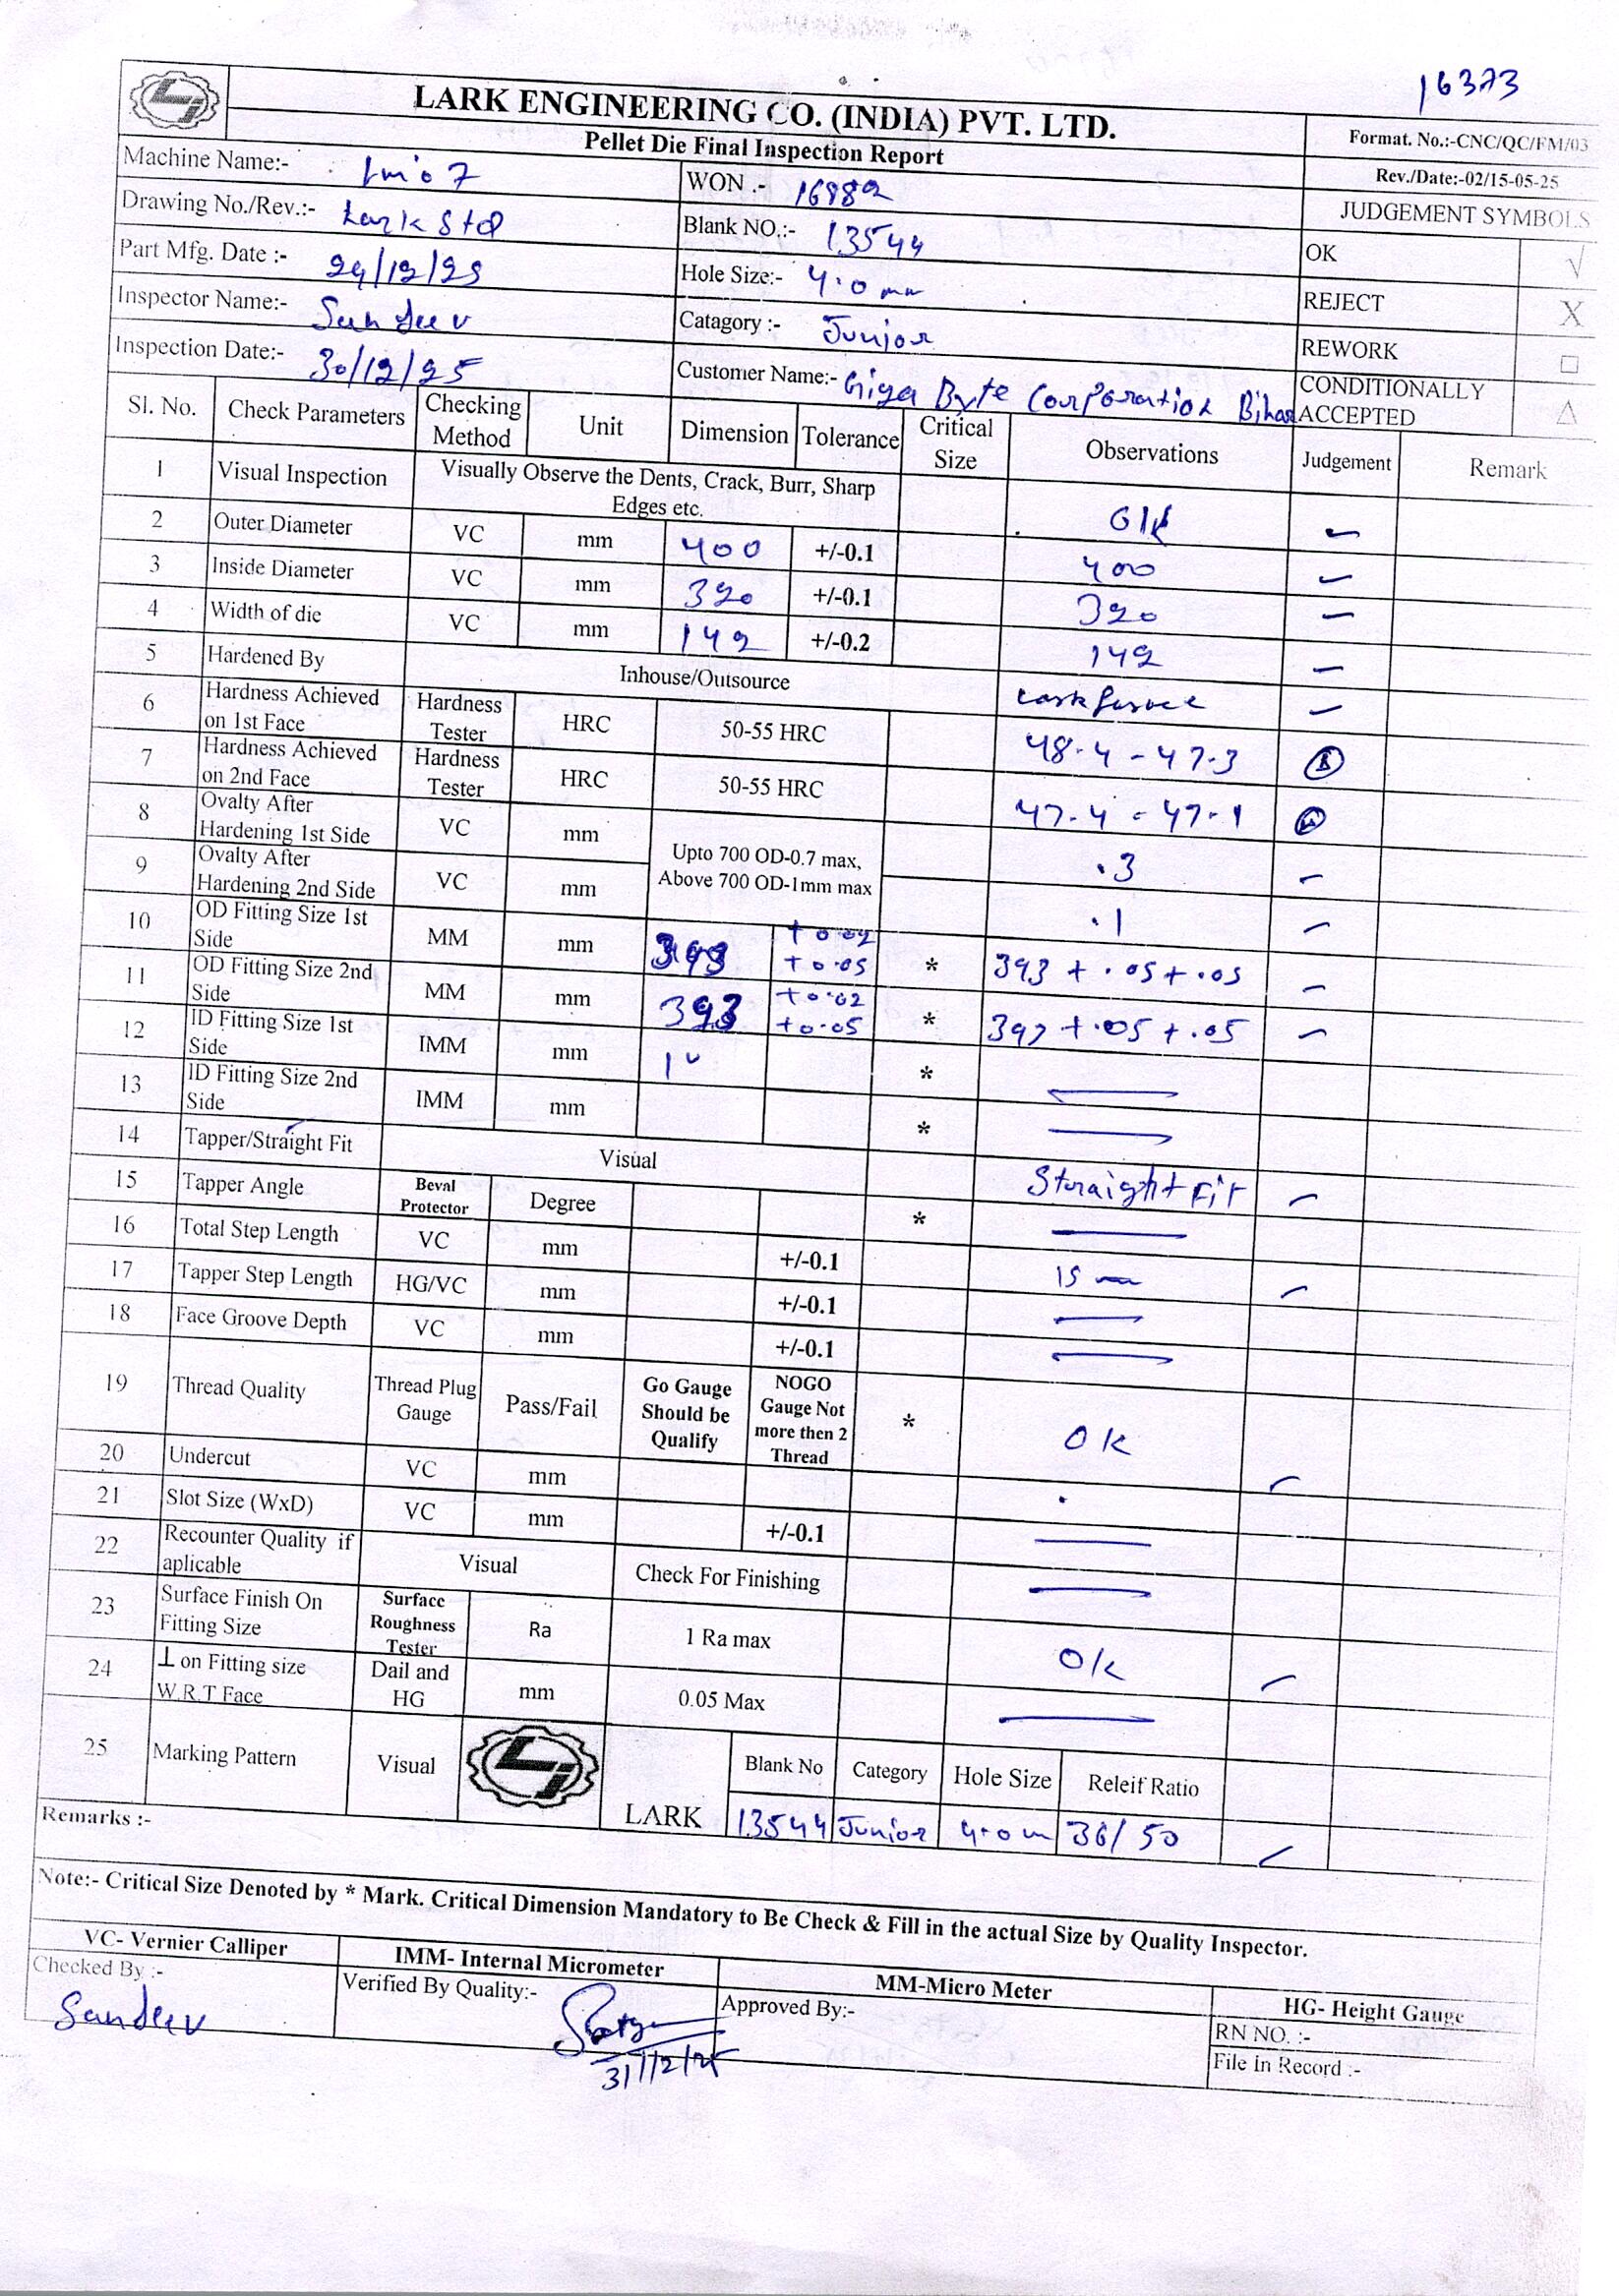 16373
LARK ENGINEERING CO. (INDIA) PVT. LTD.
Pellet Die Final Inspection Report
Format. No.:-CNC/QC/FM/03
Rev./Date:-02/15-05-25
JUDGEMENT SYMBOLS
Machine Name:- WON :- 16882
Drawing No./Rev.:- Lark Std Blank NO.:- 13544 OK √
Part Mfg. Date :- 29/12/25 Hole Size:- 4.0 mm REJECT X
Inspector Name:- Sandeev Catagory :- Junior REWORK □
Inspection Date:- 30/12/25 Customer Name:- Giga Byte Corporation Bihar CONDITIONALLY ACCEPTED △
Sl. No. Check Parameters Checking Method Unit Dimension Tolerance Critical Size Observations Judgement Remark
1 Visual Inspection Visually Observe the Dents, Crack, Burr, Sharp Edges etc. OK
2 Outer Diameter VC mm 400 +/-0.1 400
3 Inside Diameter VC mm 320 +/-0.1 320
4 Width of die VC mm 142 +/-0.2 142
5 Hardened By Inhouse/Outsource
6 Hardness Achieved on 1st Face Hardness Tester HRC 50-55 HRC 48.4 - 47.3
7 Hardness Achieved on 2nd Face Hardness Tester HRC 50-55 HRC 47.4 - 47.1
8 Ovalty After Hardening 1st Side VC mm Upto 700 OD-0.7 max, Above 700 OD-1mm max .3
9 Ovalty After Hardening 2nd Side VC mm .1
10 OD Fitting Size 1st Side MM mm 393 +0.02 +0.05 * 393 + .05 + .05
11 OD Fitting Size 2nd Side MM mm 393 +0.02 +0.05 * 393 + .05 + .05
12 ID Fitting Size 1st Side IMM mm *
13 ID Fitting Size 2nd Side IMM mm *
14 Tapper/Straight Fit Visual Straight Fit
15 Tapper Angle Beval Protector Degree *
16 Total Step Length VC mm +/-0.1 15 mm
17 Tapper Step Length HG/VC mm +/-0.1
18 Face Groove Depth VC mm +/-0.1
19 Thread Quality Thread Plug Gauge Pass/Fail Go Gauge Should be Qualify NOGO Gauge Not more then 2 Thread * OK
20 Undercut VC mm
21 Slot Size (WxD) VC mm +/-0.1
22 Recounter Quality if aplicable Visual Check For Finishing
23 Surface Finish On Fitting Size Surface Roughness Tester Ra 1 Ra max OK
24 ⊥ on Fitting size W.R.T Face Dail and HG mm 0.05 Max
25 Marking Pattern Visual LARK Blank No Category Hole Size Releif Ratio
13544 Junior 4.0 m 36/50
Remarks :-
Note:- Critical Size Denoted by * Mark. Critical Dimension Mandatory to Be Check & Fill in the actual Size by Quality Inspector.
VC- Vernier Calliper IMM- Internal Micrometer MM-Micro Meter HG- Height Gauge
Checked By :- Sandeev Verified By Quality:- 31/12/25 Approved By:- RN NO. :-
File in Record :-